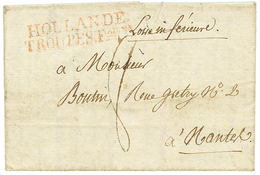 HOLLANDE
TROUPES F
Loire inférieure.
à Monsieur
Boutin, Rue Gretry N° 2
à Nantes.